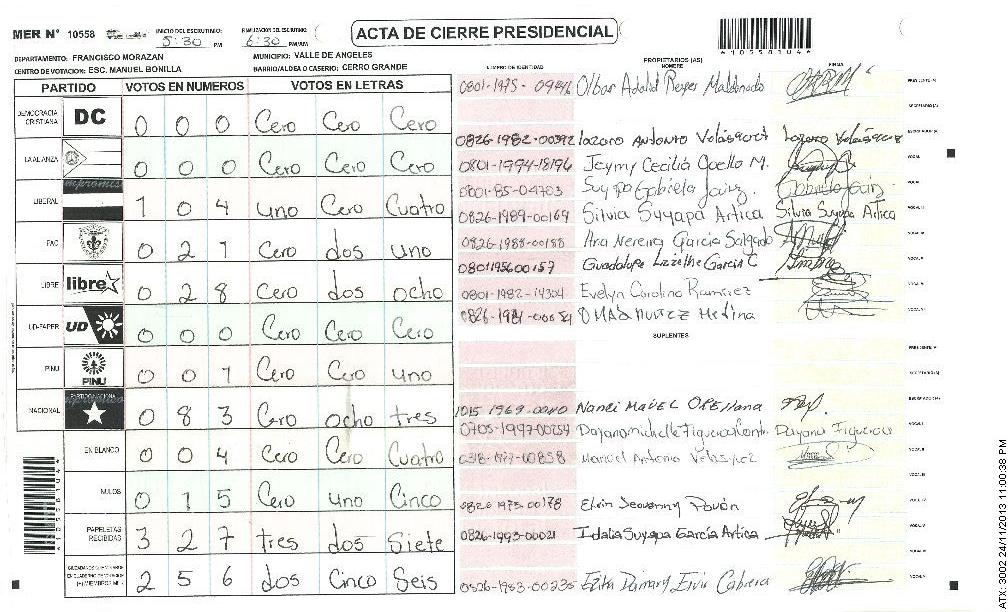 MER N° 10558
INICIO DEL ESCRUTINIO: 5:30 PM
FINALIZACION DEL ESCRUTINIO: 6:30 PM/AM
ACTA DE CIERRE PRESIDENCIAL
*10558104*
DEPARTAMENTO: FRANCISCO MORAZAN
MUNICIPIO: VALLE DE ANGELES
CENTRO DE VOTACION: ESC. MANUEL BONILLA
BARRIO/ALDEA O CASERIO: CERRO GRANDE
PARTIDO VOTOS EN NUMEROS VOTOS EN LETRAS
DEMOCRACIA CRISTIANA DC 0 0 0 Cero Cero Cero
LA ALIANZA 0 0 0 Cero Cero Cero
LIBERAL 1 0 4 uno Cero Cuatro
PAC 0 2 1 Cero dos uno
LIBRE libre 0 2 8 Cero dos ocho
UD-FAPER UD 0 0 0 Cero Cero Cero
PINU PINU 0 0 1 Cero Cero uno
NACIONAL 0 8 3 Cero ocho tres
EN BLANCO 0 0 4 Cero Cero Cuatro
NULOS 0 1 5 Cero uno Cinco
PAPELETAS RECIBIDAS 3 2 7 tres dos Siete
2 5 6 dos Cinco Seis
NUMERO DE IDENTIDAD
PROPIETARIOS (AS)
NOMBRE
FIRMA
0801-1975- Olban Adalid Reyes Maldonado
0826-1982-00392 Lazaro Antonio Velásquez
0801-1994-18196 Jeymy Cecilia Coello M.
0801-85-04703 Suyapa Gabriela
0826-1989-00169 Silvia Suyapa Artica Silvia Suyapa Artica
0826-1988-00188 García Salgado
0801195600157 Guadalupe Lizzethe Garcia C
0801-1982-14304 Evelyn Carolina Ramirez
0826-1981- Medina
SUPLENTES
1015 1969-0010 Nanci Mabel Orellana
0705-1997-00254 Dayana Michelle Figueroa Dayana Figueroa
0318-1977-00858 Manuel Antonio Velasquez
0820 1975-00178 Elvin Jeovanny Pavón
0826-1993-00021 Idalia Suyapa García Artica
0826-1983-00235 Cabrera
ATX-3002 24/11/2013 11:00:38 PM